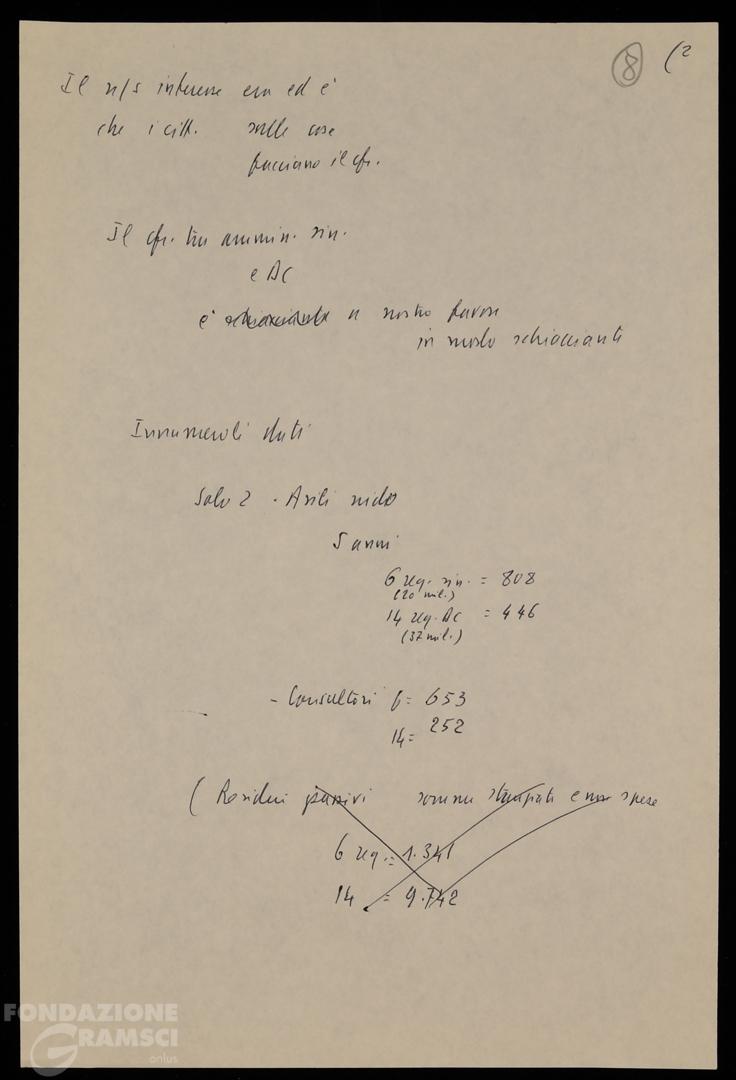 8 (2
Il n/s interesse era ed è
che i citt. sulle cose
facciano il cfr.
Il cfr. tra ammin. sin.
e DC
e' schiacciante a nostro favore
in modo schiacciante
Innumerevoli dati
Solo 2 - Asili nido
5 anni
6 reg. sin. = 808
(20 mil.)
14 reg. DC = 446
(37 mil.)
- Consultori 6 = 653
14 = 252
( Residui passivi somme stanziate e non spese
6 reg. = 1.341
14 = 9.742
FONDAZIONE
GRAMSCI
onlus